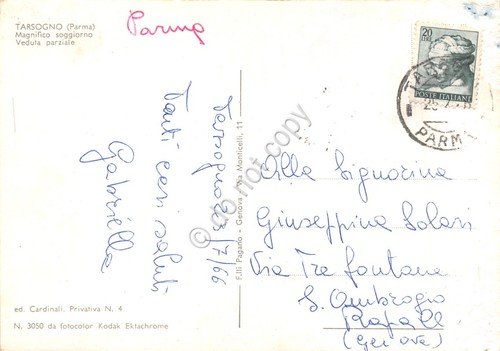 TARSOGNO (Parma)
Magnifico soggiorno
Veduta parziale
Parma
20
LIRE
POSTE ITALIANE
PARMA
Tarsogno 23/7/66
Tanti cari saluti
Gabriella
F.lli Pagano - Genova - Via Monticelli, 11
do not copy
Alla Signorina
Giuseppina Solari
Via Tre fontane
S. Ambrogio
Rapallo
(Genova)
ed. Cardinali. Privativa N. 4
N. 3050 da fotocolor Kodak Ektachrome